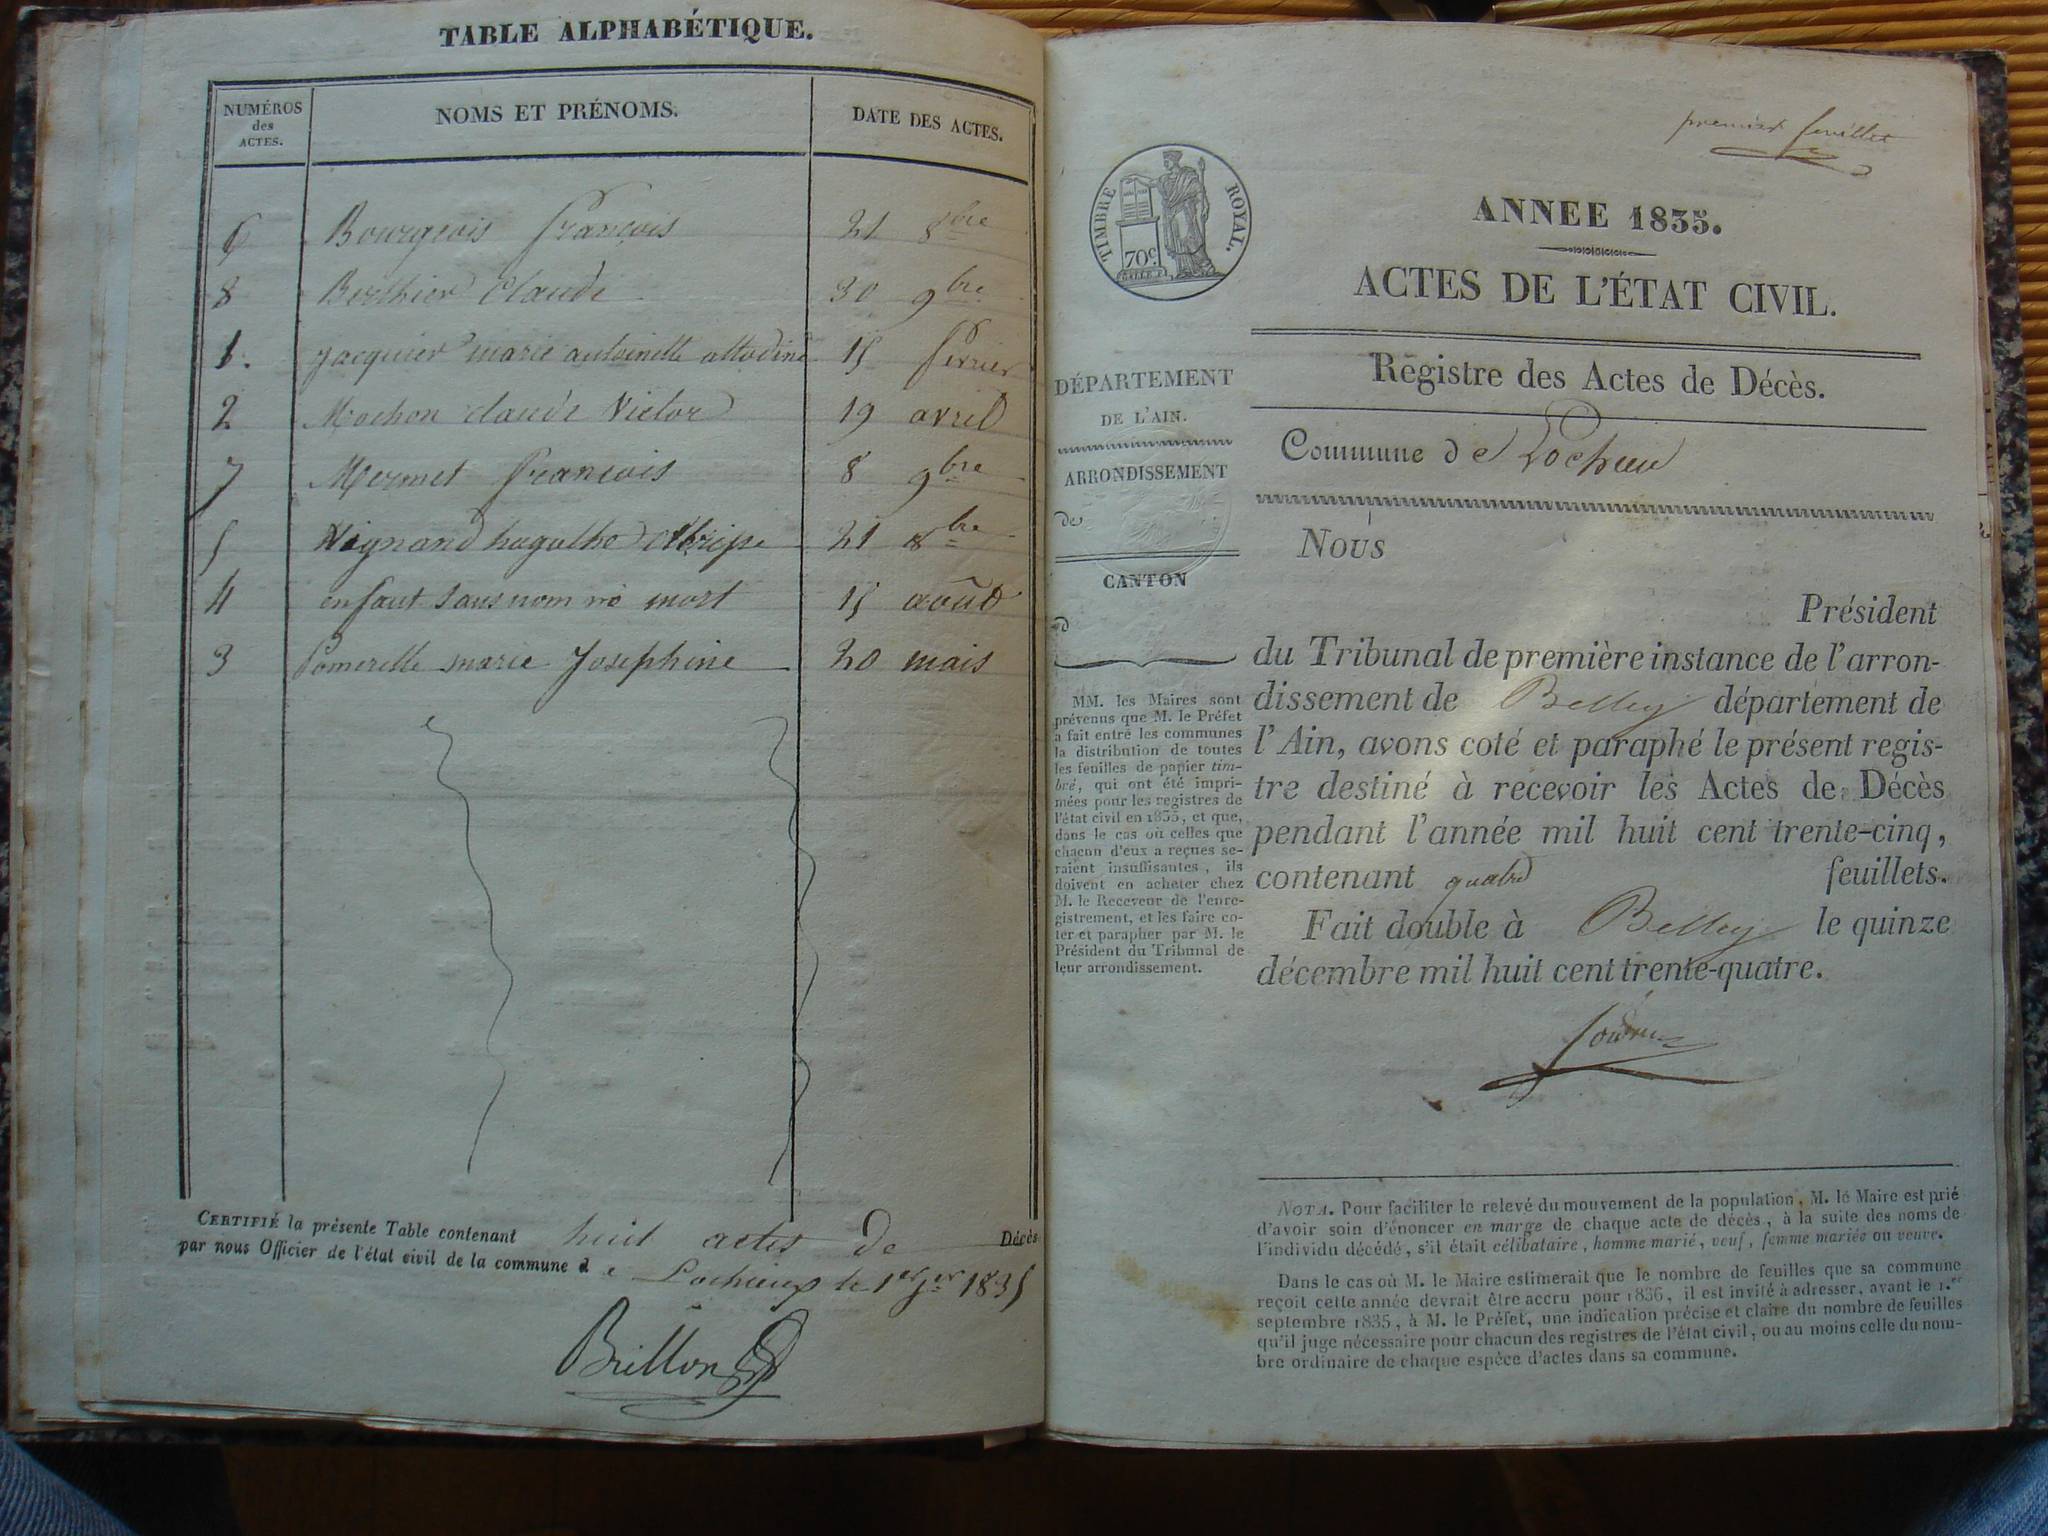 TABLE ALPHABÉTIQUE.
NUMÉROS des ACTES. NOMS ET PRÉNOMS. DATE DES ACTES.
6 Bourgeois françois 21 8bre
8 Berthier Claude 30 9bre
1. Jacquier marie antoinette 15 fevrier
2 Mochon claude Victor 19 avril
7 Mermet francois 8 9bre
5 21 8bre
4 enfant sans nom né mort 15 août
3 Pomerelle marie Josephine 20 mais
CERTIFIÉ la présente Table contenant huit actes de Décès
par nous Officier de l'état civil de la commune de Lochieux le 1er jer 1835
Brillon
premier feuillet
TIMBRE ROYAL.
70c.
ANNEE 1835.
ACTES DE L'ÉTAT CIVIL.
DÉPARTEMENT
DE L'AIN.
ARRONDISSEMENT
de
CANTON
d
MM. les Maires sont
prévenus que M. le Préfet
a fait entre les communes
la distribution de toutes
les feuilles de papier tim-
bré, qui ont été impri-
mées pour les registres de
l'état civil en 1835, et que,
dans le cas où celles que
chacun d'eux a reçues se-
raient insuffisantes, ils
doivent en acheter chez
M. le Receveur de l'enre-
gistrement, et les faire co-
ter et parapher par M. le
Président du Tribunal de
leur arrondissement.
Registre des Actes de Décès.
Commune de Lochieu
Nous
Président
du Tribunal de première instance de l'arron-
dissement de Belley département de
l'Ain, avons coté et paraphé le présent regis-
tre destiné à recevoir les Actes de Décès
pendant l'année mil huit cent trente-cinq,
contenant quatre feuillets.
Fait double à Belley le quinze
décembre mil huit cent trente-quatre.
NOTA. Pour faciliter le relevé du mouvement de la population, M. le Maire est prié
d'avoir soin d'énoncer en marge de chaque acte de décès, à la suite des noms de
l'individu décédé, s'il était célibataire, homme marié, veuf, femme mariée ou veuve.
Dans le cas où M. le Maire estimerait que le nombre de feuilles que sa commune
reçoit cette année devrait être accru pour 1836, il est invité à adresser, avant le 1.er
septembre 1835, à M. le Préfet, une indication précise et claire du nombre de feuilles
qu'il juge nécessaire pour chacun des registres de l'état civil, ou au moins celle du nom-
bre ordinaire de chaque espèce d'actes dans sa commune.